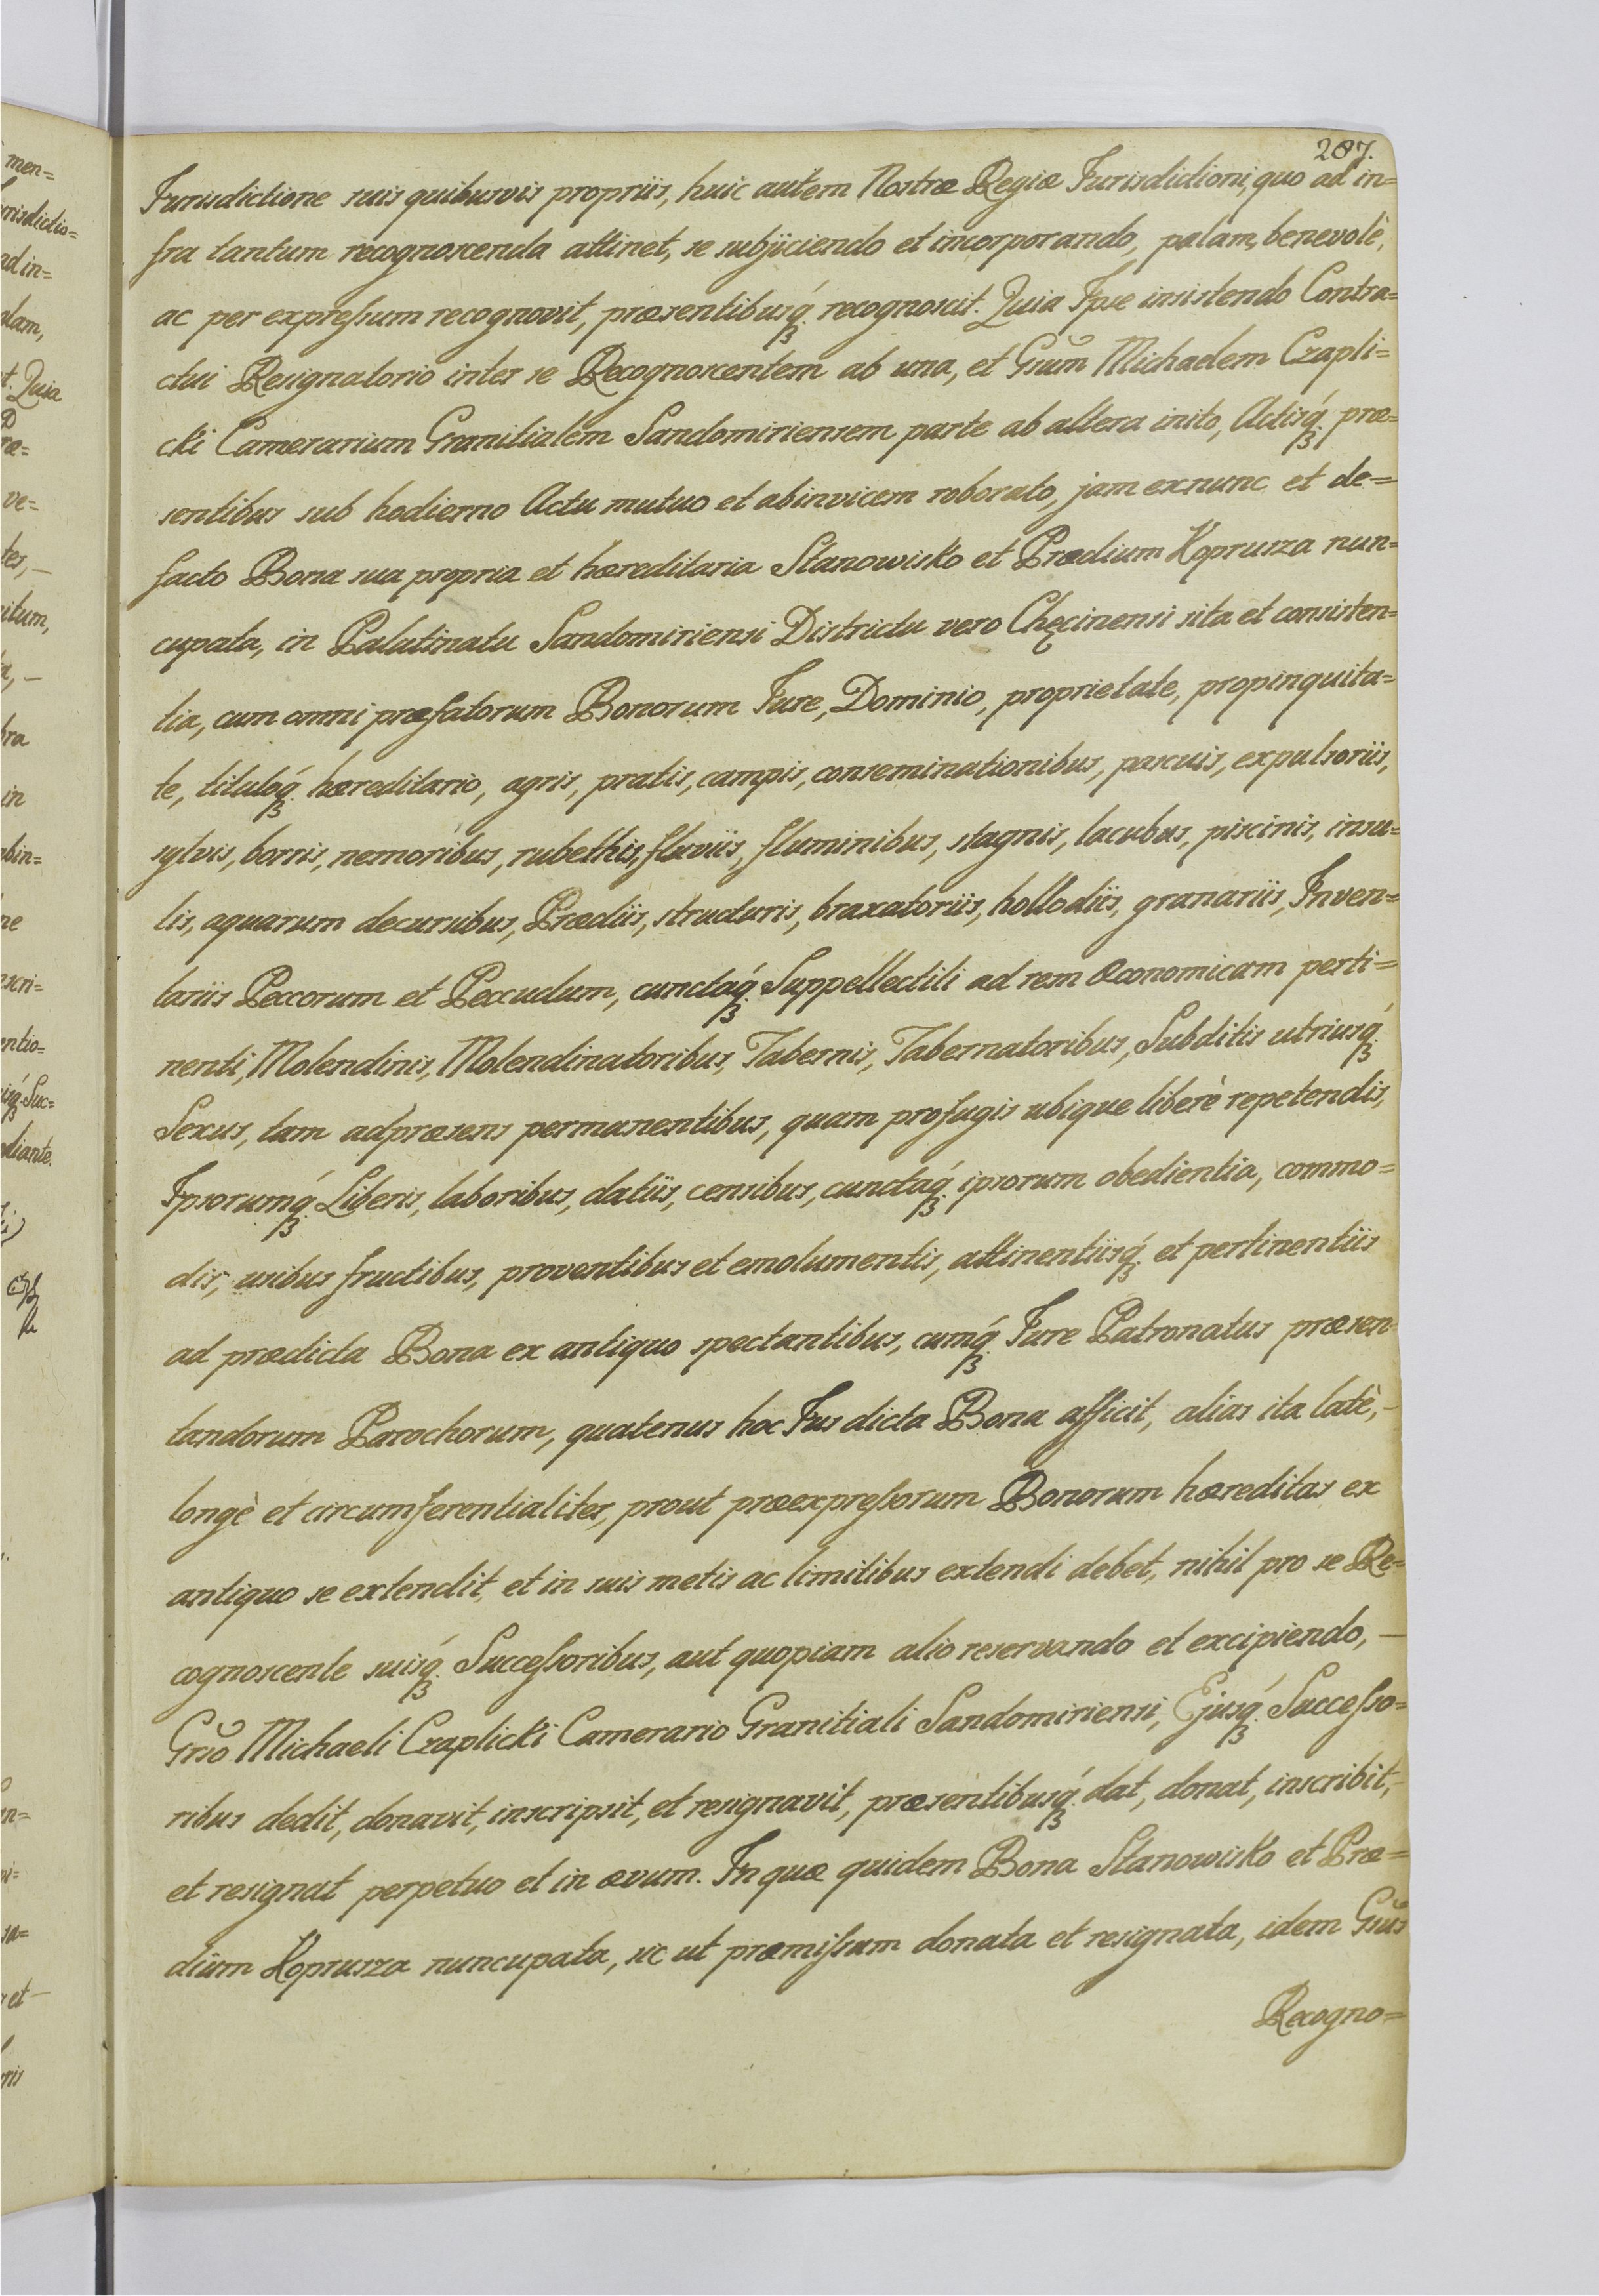 207.
Jurisdictione suis quibusvis propriis, huic autem Nostræ Regiæ Jurisdictioni, quo ad in=
fra tantum recognoscenda attinet, se subjiciendo et incorporando, palam, benevolè,
ac per expressum recognovit, præsentibusq́ꝫ. recognoscit. Quia Ipse insistendo Contra=
ctui Resignatorio inter se Recognoscentem ab una, et Gsum Michaelem Czapli=
cki Camerarium Granitialem Sandomiriensem parte ab altera inito, Actisq́ꝫ. præ=
sentibus sub hodierno Actu mutuo et abinvicem roborato, jam exnunc et de=
facto Bona sua propria et hæreditaria Stanowisko et Prædium Koprusza nun=
cupata, in Palatinatu Sandomiriensi Districtu vero Chęcinensi sita et consisten=
tia, cum omni præfatorum Bonorum Jure, Dominio, proprietate, propinquita=
te, tituloq́ꝫ. hæreditario, agris, pratis, campis, conseminationibus, pascuis, expulsoriis,
sylvis, borris, nemoribus, rubethis, fluviis, fluminibus, stagnis, lacubus, piscinis, insu=
lis, aquarum decursibus, Prædiis, structuris, braxatoriis, hollodiis, granariis, Inven=
tariis Peccorum et Peccudum, cunctaq́ꝫ. Suppellectili ad rem Œconomicam perti=
nenti, Molendinis, Molendinatoribus, Tabernis, Tabernatoribus, Subditis utriusq́ꝫ.
Sexus, tam adpræsens permanentibus, quam profugis ubique liberè repetendis,
Ipsorumq́ꝫ. Liberis, laboribus, datiis, censibus, cunctaq́ꝫ. ipsorum obedientia, commo=
dis, usibus fructibus, proventibus et emolumentis, attinentiisq́ꝫ. et pertinentiis
ad prædicta Bona ex antiquo spectantibus, cumq́ꝫ. Jure Patronatus præsen=
tandorum Parochorum, quatenus hoc Jus dicta Bona afficit, alias ita latè,-
longè et circumferentialiter, prout præexpressorum Bonorum hæreditas ex
antiquo se extendit, et in suis metis ac limitibus extendi debet, nihil pro se Re=
cognoscente suisq́ꝫ. Successoribus, aut quopiam alio reservando et excipiendo, —
Grso Michaeli Czaplicki Camerario Granitiali Sandomiriensi, Ejusq́ꝫ. Successo=
ribus dedit, donavit, inscripsit, et resignavit, præsentibusq́ꝫ. dat, donat, inscribit,-
et resignat perpetuo et in ævum. In quæ quidem Bona Stanowisko et Præ=
dium Koprusza nuncupata, sic ut præmissum donata et resignata, idem Gsus
Recogno=